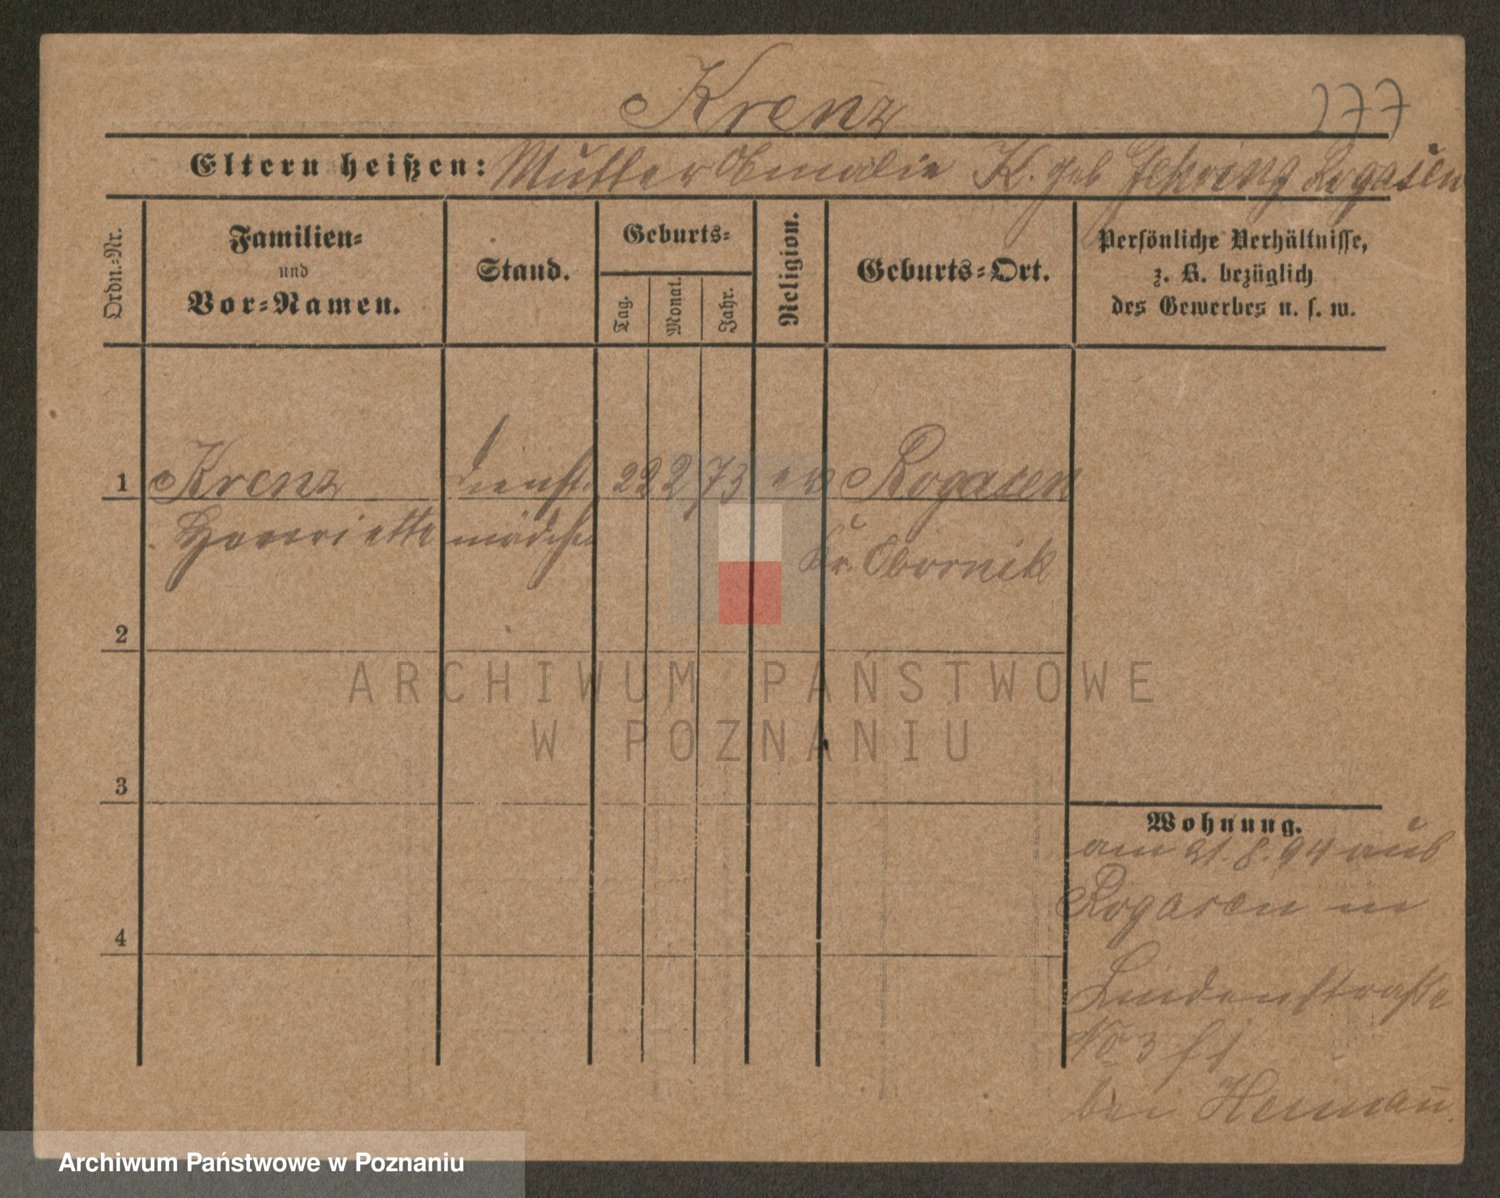 Krenz
277
Eltern heißen: Mutter Amalie K. geb. Rogasen
Ordn.-Nr.
Familien-
und
Vor-Namen.
Stand.
Geburts-
Tag.
Monat.
Jahr.
Religion.
Geburts-Ort.
Persönliche Verhältnisse,
z. B. bezüglich
des Gewerbes u. s. w.
1 Krenz Dienst- 22 2 73 ev Rogasen
Henriette mädchen Kr. Obornik
2
ARCHIWUM PAŃSTWOWE
W POZNANIU
3
Wohnung.
am 21.8.94 aus
Rogasen in
4
Lindenstraße
No 3
bei Heimann.
Archiwum Państwowe w Poznaniu